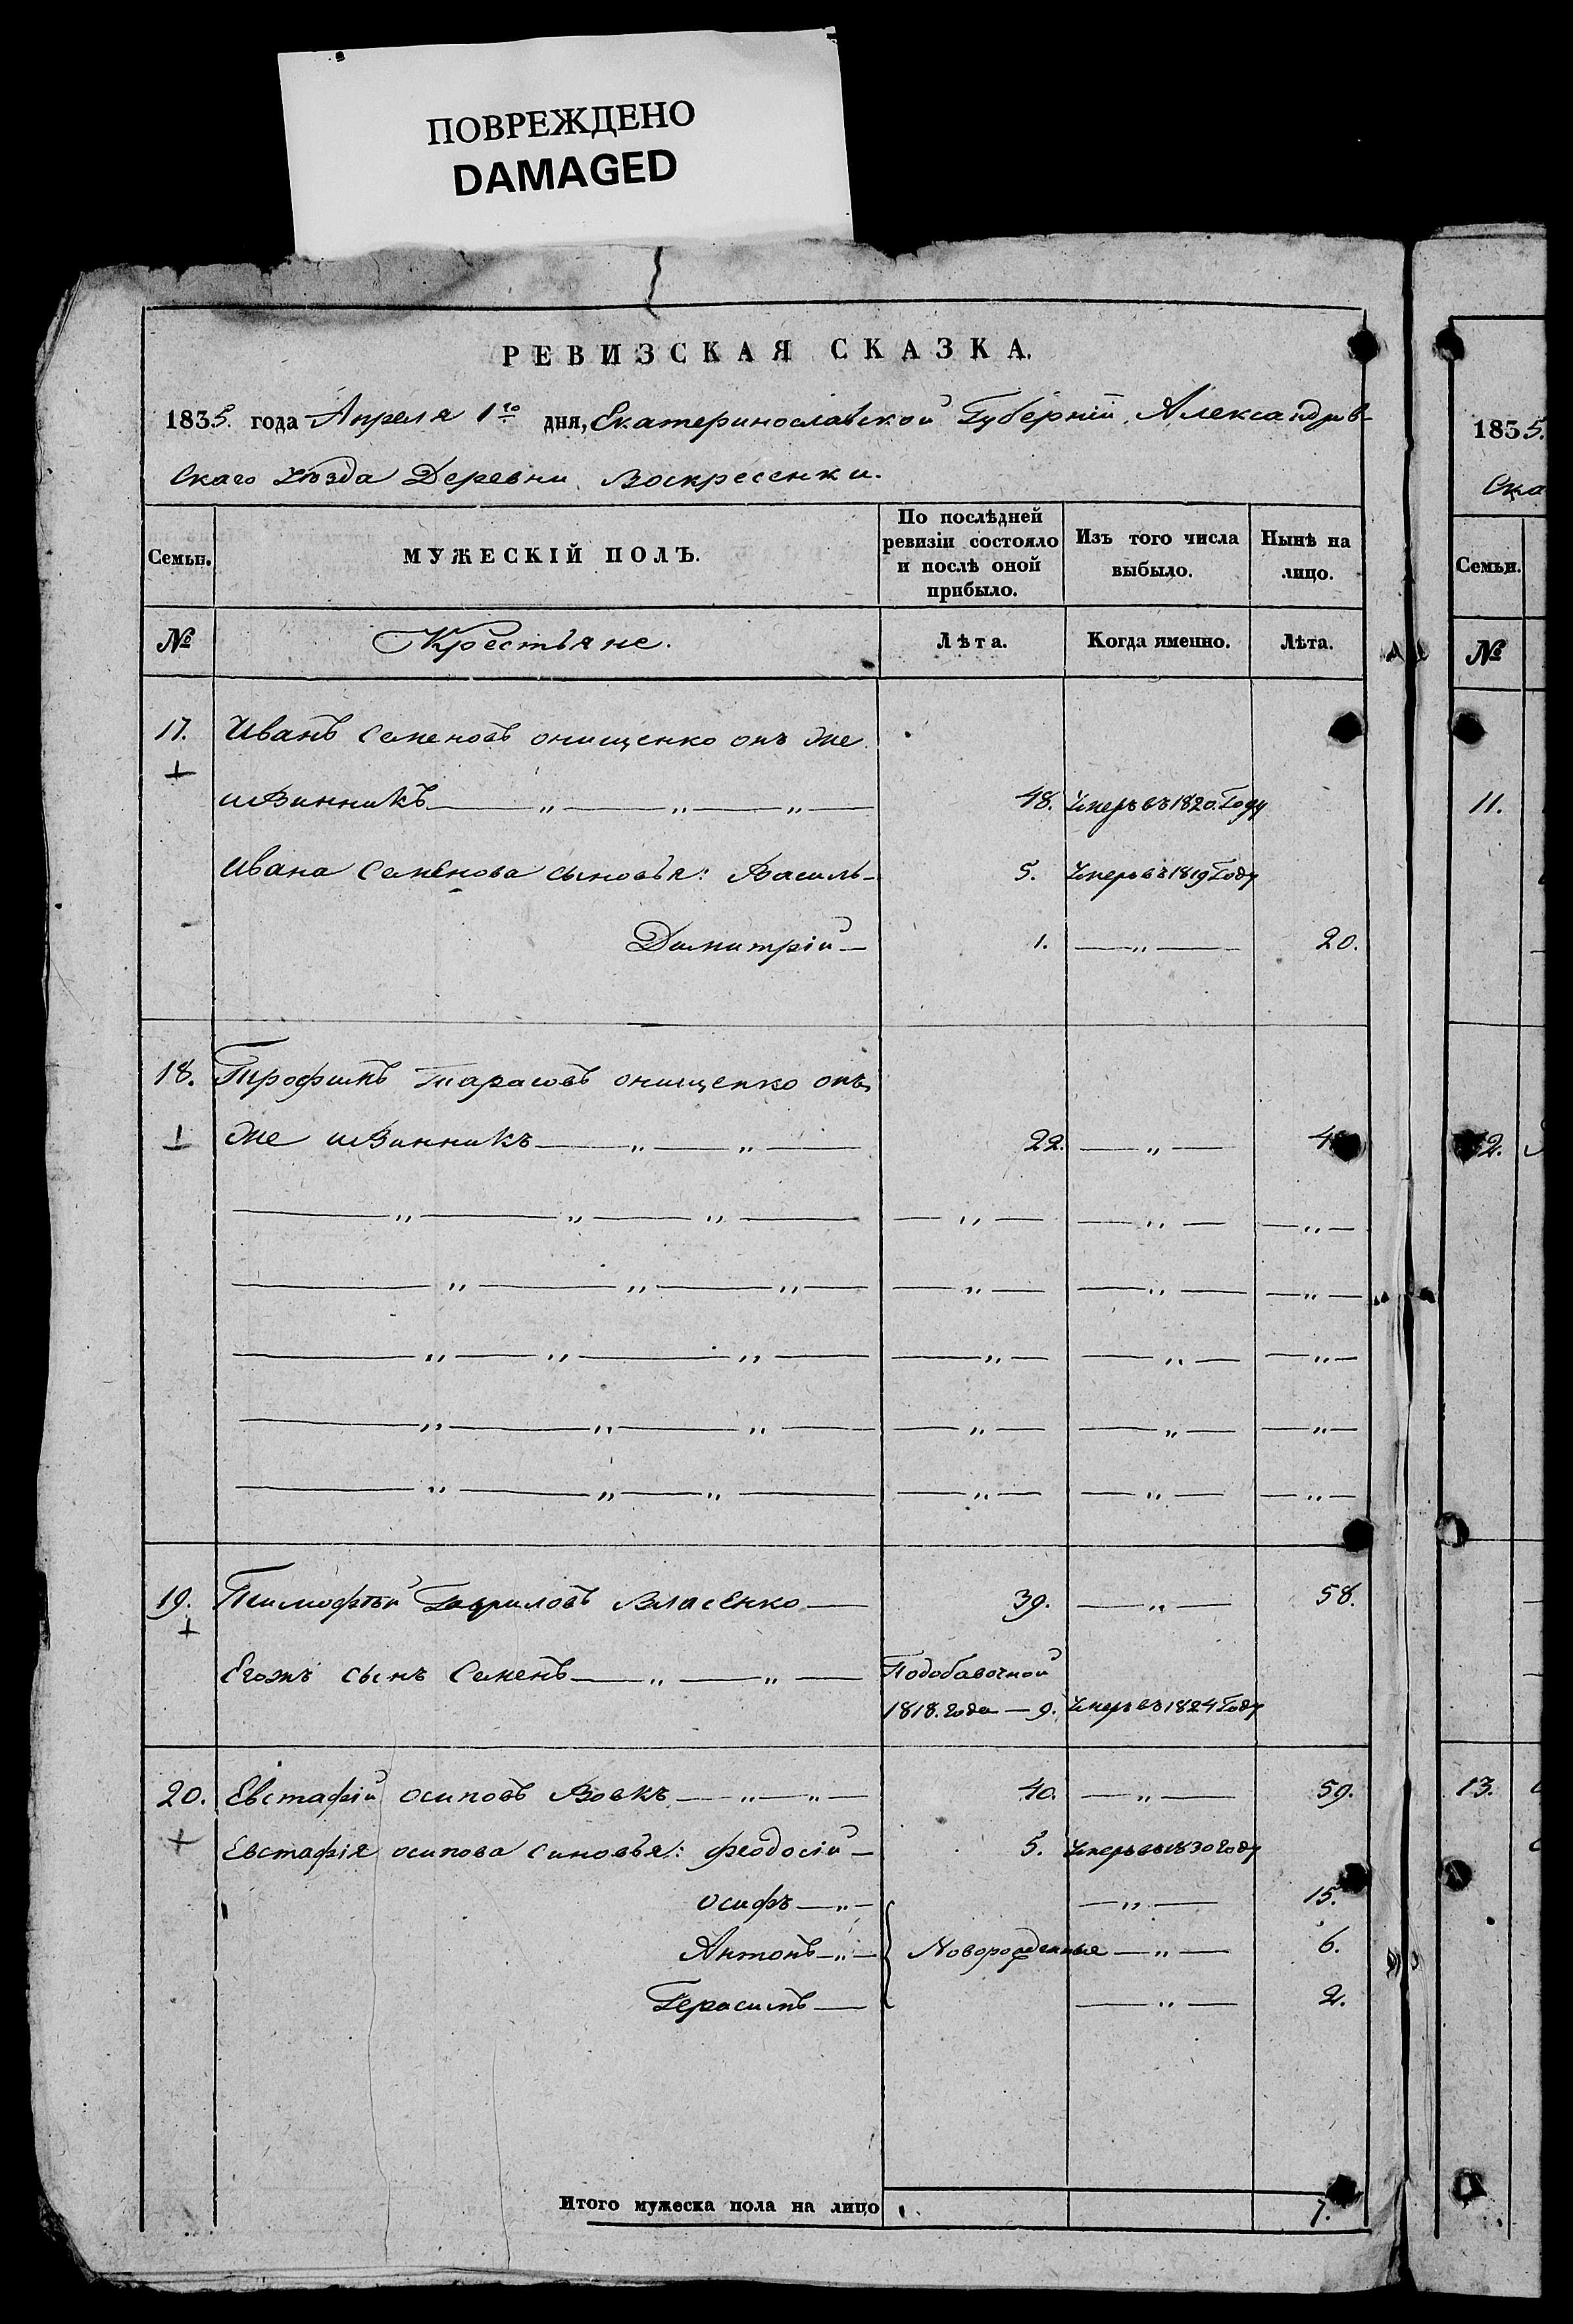 ПОВРЕЖДЕНО
DAMAGED
РЕВИЗСКАЯ СКАЗКА.
1835. года Апреля 1го дня, Екатеринославской Губернїи, Александров-
скаго уѣзда Деревни Воскресенки.
Семьи. МУЖЕСКІЙ ПОЛЪ. По послѣдней ревизіи состояло и послѣ оной прибыло. Изъ того числа выбыло. Нынѣ на лицо.
№ Крестьяне. Лѣта. Когда именно. Лѣта.
17. Иванъ Семеновъ Онищенко онъ же
и Винникъ 48. Умеръ въ 1820. Году
Ивана Семенова сыновья: Василь 5. Умеръ въ 1819 Году
Димитрій 1. — „ — 20.
18. Трофимъ Тарасовъ Онищенко онъ
же и Винникъ — „ — „ — 22. — „ — 4
19. Тимофѣй Гавриловъ Власенко — 39. — „ — 58.
Егожъ сынъ Семенъ — „ — „ — Подобавочной
1818. года — 9. Умеръ въ 1824 Году
20. Евстафій Осиповъ Вовкъ — „ — „ — 40. — „ — 59.
Евстафія Осипова синовья: Феодосій — 5. Умеръ въ 1830 году
Осифъ — „ — — „ — 15.
Антонъ — „ — Новорожденные — „ — 6.
Герасимъ — — „ — 2.
Итого мужеска пола на лицо 7.
1835.
Ска
Семьи.
№
11.
12.
13.